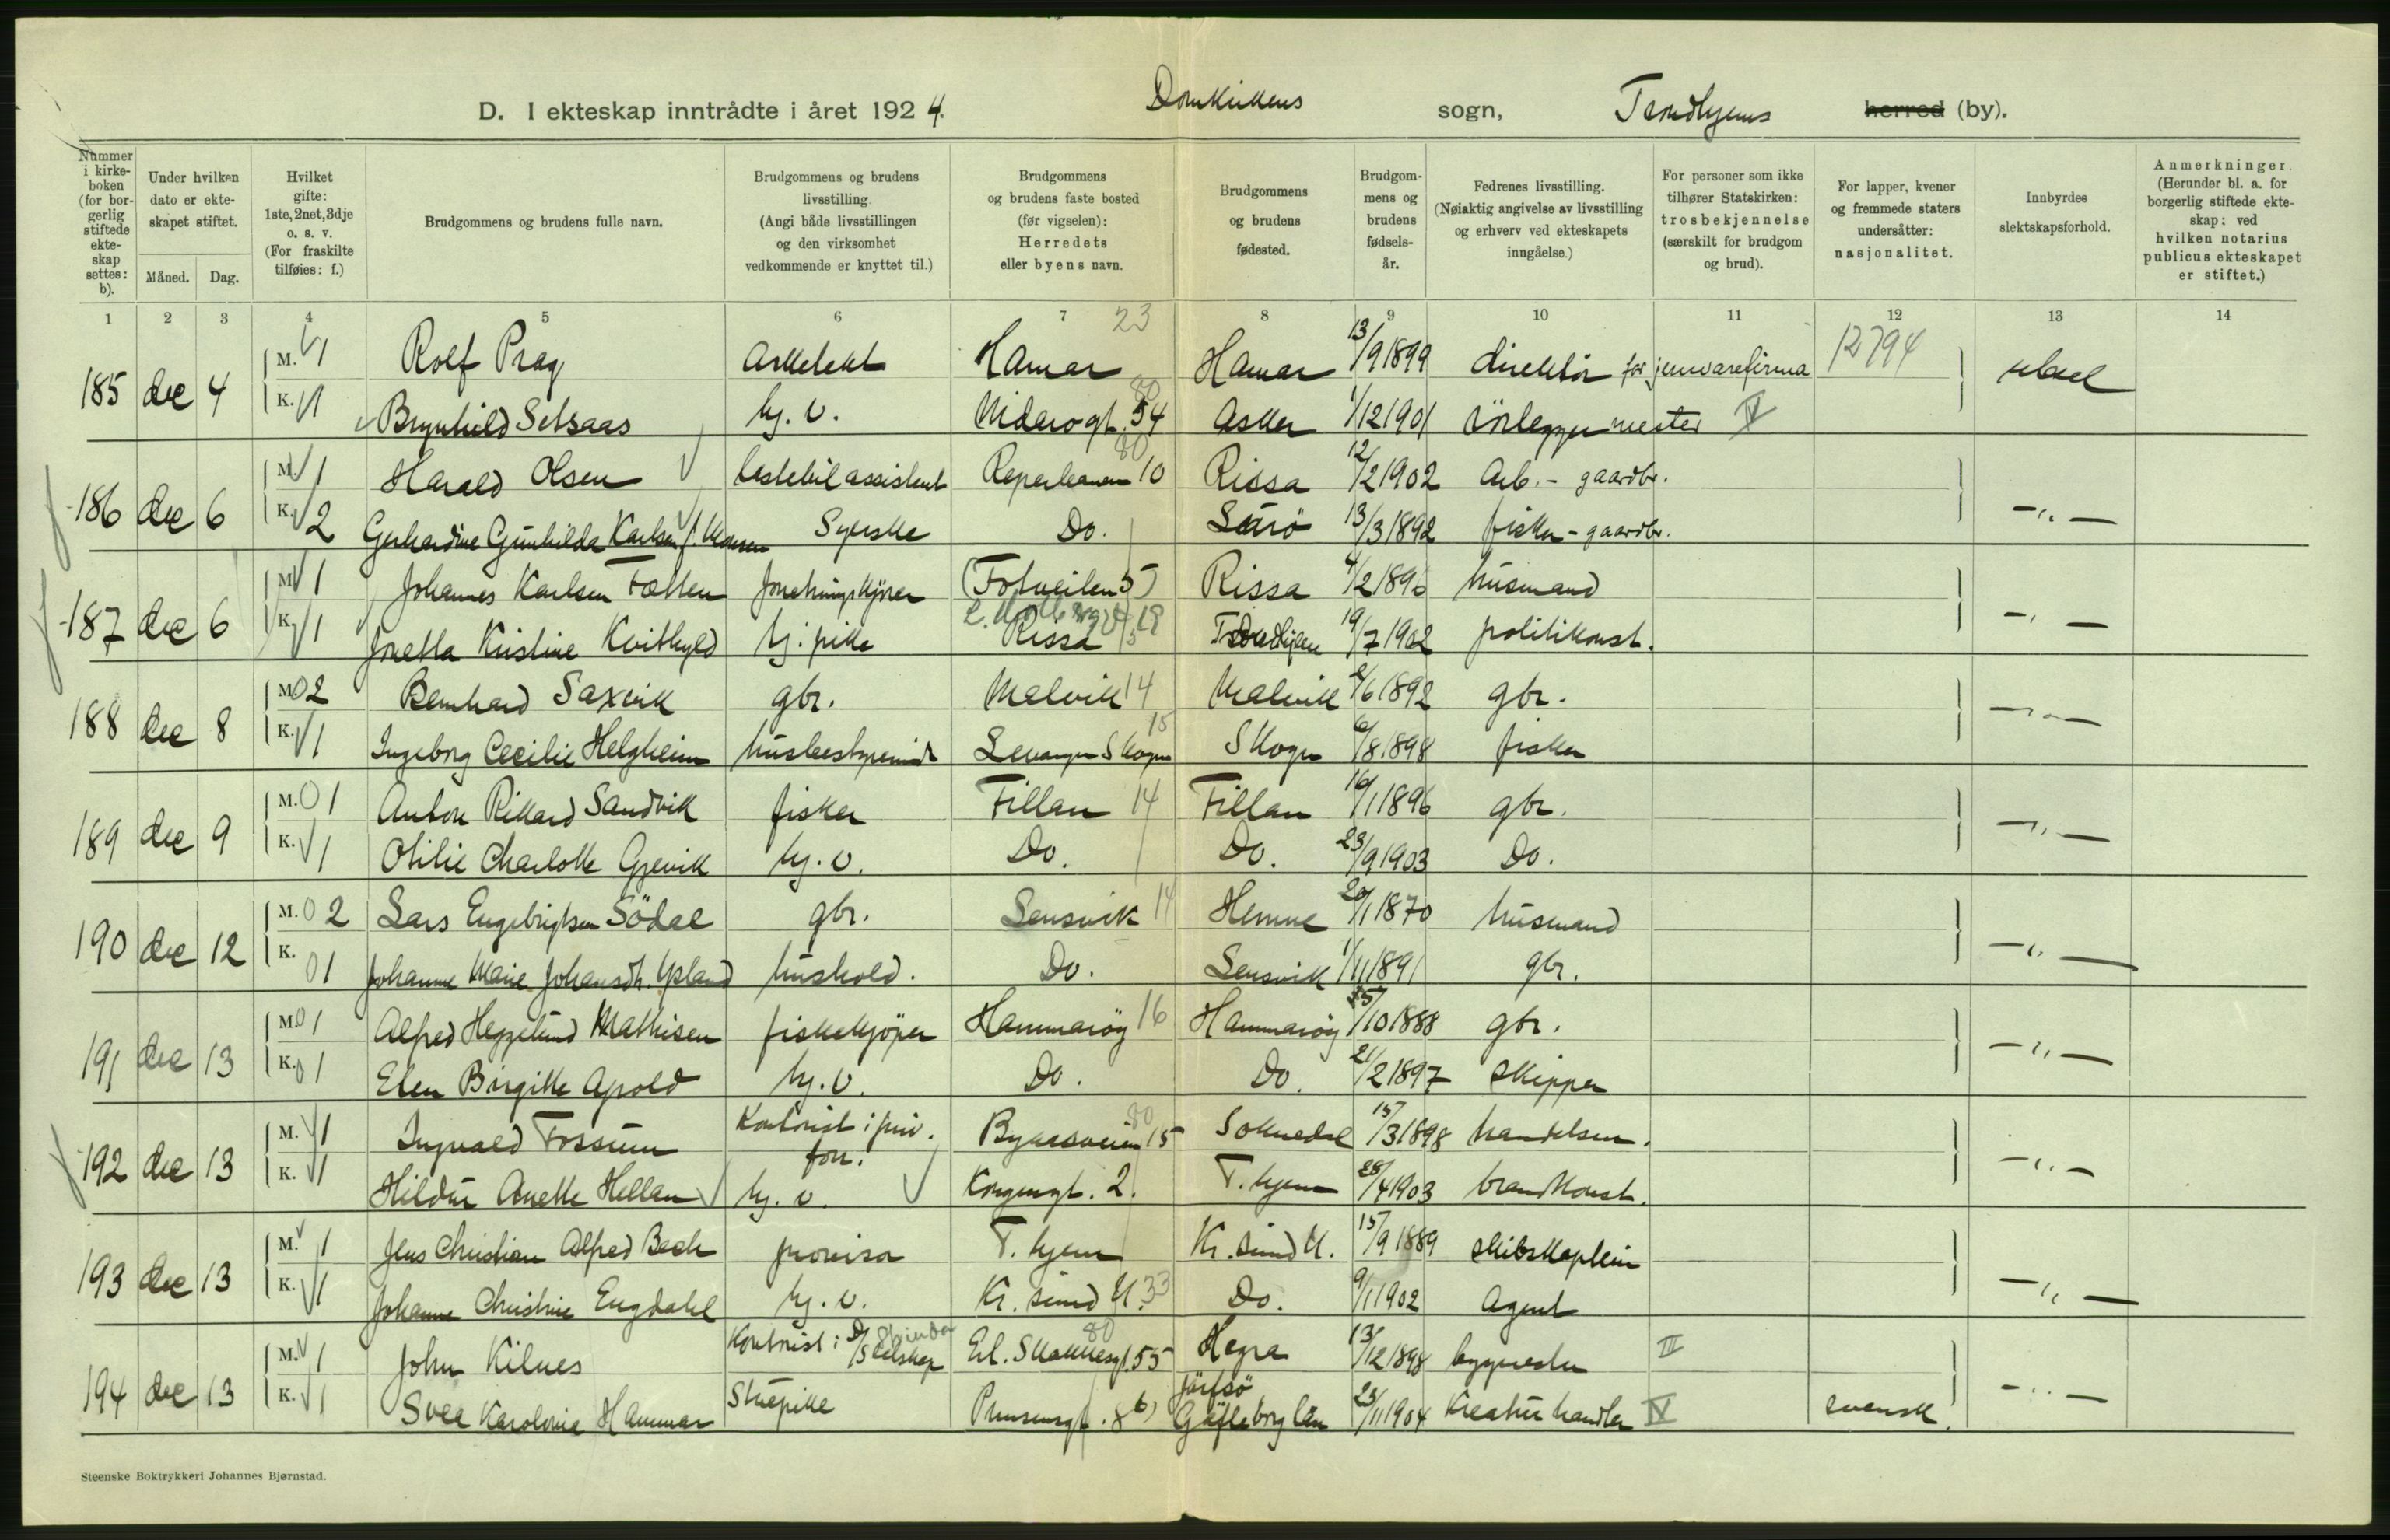 D. I ekteskap inntrådte i året 1924. Domkirkens sogn, Trondhjems herred (by).
Nummer i kirke-boken (for bor-gerlig stiftede ekte-skap settes: b).
Under hvilken dato er ekte-skapet stiftet.
Måned. Dag.
Hvilket gifte: 1ste, 2net, 3dje o. s. v. (For fraskilte tilføies: f.)
Brudgommens og brudens fulle navn.
Brudgommens og brudens livsstilling. (Angi både livsstillingen og den virksomhet vedkommende er knyttet til.)
Brudgommens og brudens faste bosted (før vigselen): Herredets eller byens navn.
Brudgommens og brudens fødested.
Brudgom-mens og brudens fødsels-år.
Fedrenes livsstilling. (Nøiaktig angivelse av livsstilling og erhverv ved ekteskapets inngåelse.)
For personer som ikke tilhører Statskirken: trosbekjennelse (særskilt for brudgom og brud).
For lapper, kvener og fremmede staters undersåtter: nasjonalitet.
Innbyrdes slektskapsforhold.
Anmerkninger. (Herunder bl. a. for borgerlig stiftede ekte-skap: ved hvilken notarius publicus ekteskapet er stiftet.)
1 2 3 4 5 6 7 8 9 10 11 12 13 14
23
185 dec 4 M. 1 Rolf Prag Arkitekt Hamar Hamar 13/9 1899 direktör for jernvarefirma 12794
K. 1 Brynhild Setsaas hj. v. Nidarogt. 54 80 Asker 1/12 1901 rörleggermester IV
186 dec 6 M. 1 Harald Olsen lastebilassistent Reperbanen 10 80 Rissa 12/2 1902 Arb. - gaardbr. -"-
K. 2 Gerhardine Gunhilda Karlsen f. Syerske Do. 13/3 1892 fisker - gaardbr.
187 dec 6 M. 1 Johannes Karlsen Fætten forretningskjører Rissa 4/2 1896 husmand -"-
K. 1 Jonetta Kristine Kvithyld hj. pike Rissa Trondhjem 19/7 1902 politikonst.
188 dec 8 M. 2 Bernhard Saxvik gbr. Malvik 14 Malvik 2/6 1892 gbr. -"-
K. 1 Ingeborg Cecilie Helgheim husbestyrerinde Levanger Skogn 15 Skogn 6/8 1898 fisker
189 dec 9 M. 1 Anton Rikard Sandvik fisker Fillan 14 Fillan 16/1 1896 gbr. -"-
K. 1 Otilie Charlotte Gjevik hj. v. Do. Do. 23/9 1903 Do.
190 dec 12 M. 2 Lars Engebrigtsen Södal gbr. Lensvik 14 Hemne 20/1 1870 husmand -"-
K. 1 Johanne Marie Johansdt. hushold. Do. Lensvik 1/11 1891 gbr.
191 dec 13 M. 1 Alfred Heggelund Mathisen fiskekjöper Hammaröy 16 Hammaröy 25/10 1888 gbr. -"-
K. 1 Elen Birgitte Apold hj. v. Do. Do. 21/2 1897 skipper
192 dec 13 M. 1 Ingvald Fossum Kontorist i priv. forr. Byaasveien 15 80 Soknedal 15/3 1898 handelsm. -"-
K. 1 Hildur Anette Hellan hj. v. Kongensgt. 2. T.hjem 28/4 1903 brandkonst.
193 dec 13 M. 1 Jens Christian Alfred Bech provisor T.hjem Kr.sund N. 15/9 1889 skibskaptein -"-
K. 1 Johanne Christine Engdahl hj. v. Kr.sund N. 33 Do. 9/1 1902 Agent
194 dec 13 M. 1 John Kilnes Kontorist i D/S selskap Erl. Skakkesgt. 55 80 Hegra 13/12 1898 byggmester III -"-
K. 1 Svea Karolina Hammar Stuepike Prinsensgt. 8 b) Järfsö Gäfleborg län 23/11 1904 Kreaturhandler IV svensk.
Steenske Boktrykkeri Johannes Bjørnstad.